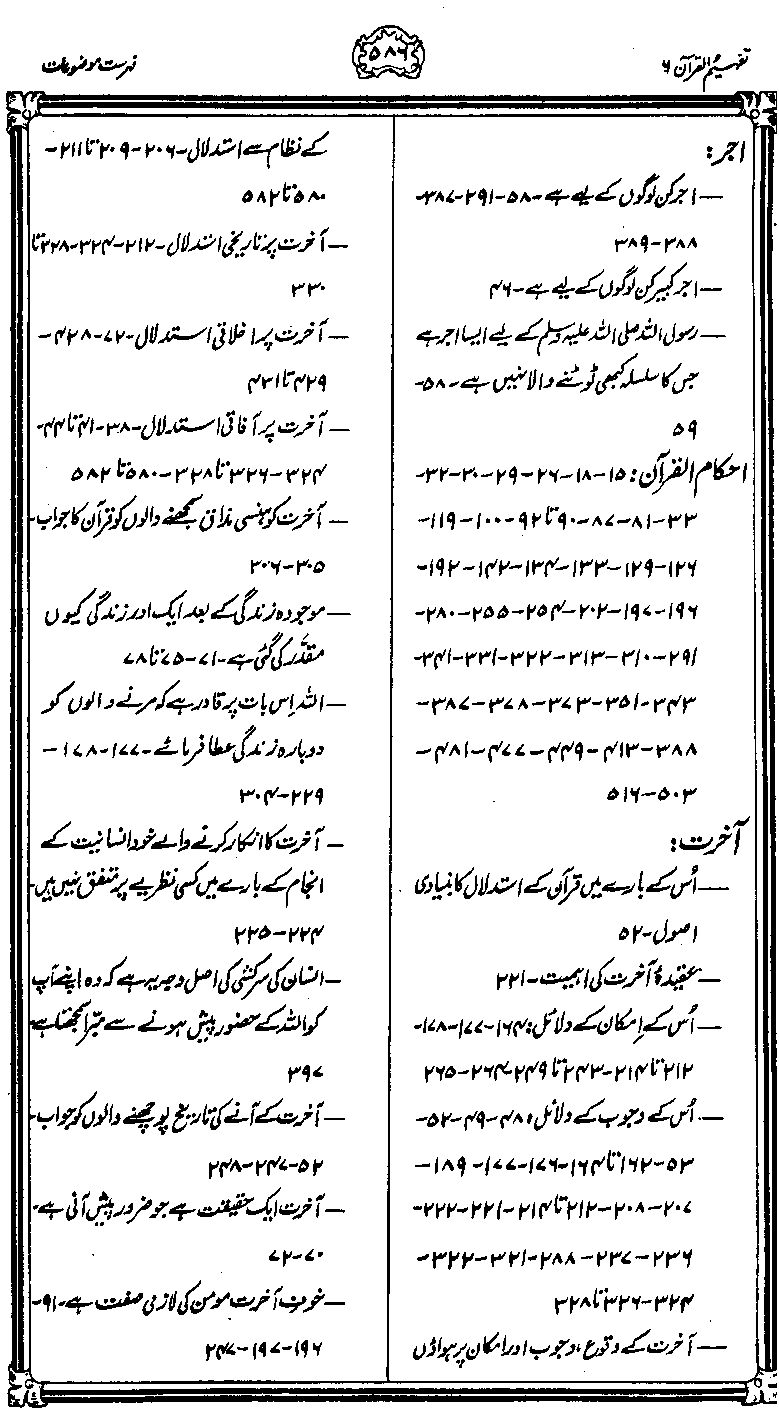 تفہیم القرآن ۶
۵۸۶
فہرست موضوعات
اجر:
— اجر کن لوگوں کے لیے ہے -۵۸-۲۹۱-۳۸۷-
۳۸۸-۳۸۹
— اجر کبیر کن لوگوں کے لیے ہے -۴۶
— رسول اللہ صلی اللہ علیہ وسلم کے لیے ایسا اجر ہے
جس کا سلسلہ کبھی ٹوٹنے والا نہیں ہے -۵۸-
۵۹
احکام القرآن: ۱۵-۱۸-۲۶-۲۹-۳۰-۳۲-
۳۳-۸۱-۸۷-۹۰ تا ۹۲-۱۰۰-۱۱۹-
۱۲۶-۱۲۹-۱۳۳-۱۳۴-۱۴۲-۱۹۲-
۱۹۶-۱۹۷-۲۰۲-۲۵۴-۲۵۵-۲۸۰-
۲۹۱-۳۱۰-۳۱۳-۳۲۲-۳۳۱-۳۴۱-
۳۴۳-۳۵۱-۳۷۳-۳۷۸-۳۸۷-
۳۸۸-۴۱۳-۴۴۹-۴۷۷-۴۸۱-
۵۰۳-۵۱۶
آخرت:
— اُس کے بارے میں قرآن کے استدلال کا بنیادی
اصول -۵۲
— عقیدۂ آخرت کی اہمیت -۲۲۱
— اُس کے اِمکان کے دلائل: ۱۶۴-۱۷۷-۱۷۸-
۲۱۲ تا ۲۱۴-۲۴۳ تا ۲۴۹-۲۶۴-۲۶۵
— اُس کے وجوب کے دلائل: ۴۸-۴۹-۵۲-
۵۳-۱۶۲ تا ۱۶۴-۱۷۶-۱۷۷-۱۸۹-
۲۰۷-۲۰۸-۲۱۲ تا ۲۱۴-۲۲۱-۲۲۲-
۲۳۶-۲۳۷-۲۸۸-۳۲۱-۳۲۲-
۳۲۴-۳۲۶ تا ۳۲۸
— آخرت کے وقوع، وجوب اور امکان پر ہواؤں
کے نظام سے استدلال -۲۰۶-۲۰۹ تا ۲۱۱-
۵۸۰ تا ۵۸۲
— آخرت پر تاریخی استدلال -۲۱۲-۳۲۴-۳۲۸ تا
۳۳۰
— آخرت پر اخلاقی استدلال -۷۲-۴۲۸-
۴۲۹ تا ۴۳۱
— آخرت پر آفاقی استدلال -۳۸-۴۱ تا ۴۴-
۳۲۴-۳۲۶ تا ۳۲۸-۵۸۰ تا ۵۸۲
— آخرت کو ہنسی مذاق سمجھنے والوں کو قرآن کا جواب-
۳۰۵-۳۰۶
— موجودہ زندگی کے بعد ایک اور زندگی کیوں
مقدّر کی گئی ہے -۷۱-۷۵ تا ۷۸
— اللہ اِس بات پر قادر ہے کہ مرنے والوں کو
دوبارہ زندگی عطا فرمائے -۱۷۷-۱۷۸-
۲۲۹-۳۰۴
— آخرت کا انکار کرنے والے خود انسانیت کے
انجام کے بارے میں کسی نظریے پر متفق نہیں ہیں-
۲۲۴-۲۲۵
— انسان کی سرکشی کی اصل وجہ یہ ہے کہ وہ اپنے آپ
کو اللہ کے حضور پیش ہونے سے مبرّا سمجھتا ہے-
۳۹۷
— آخرت کے آنے کی تاریخ پوچھنے والوں کو جواب-
۵۲-۲۴۷-۲۴۸
— آخرت ایک حقیقت ہے جو ضرور پیش آنی ہے-
۷۰-۷۲
— خوفِ آخرت مومن کی لازمی صفت ہے -۹۱-
۱۹۶-۱۹۷-۲۴۷